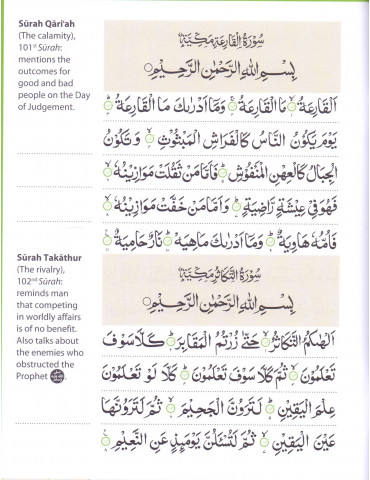 Sūrah Qāri'ah
(The calamity),
101st Sūrah:
mentions the
outcomes for
good and bad
people on the Day
of Judgement.
سُوْرَةُ الْقَارِعَةِ مَكِّيَّةٌ
بِسْمِ اللهِ الرَّحْمٰنِ الرَّحِيْمِ
اَلْقَارِعَةُ ۙ مَا الْقَارِعَةُ ۚ وَمَآ اَدْرٰىكَ مَا الْقَارِعَةُ ؕ
يَوْمَ يَكُوْنُ النَّاسُ كَالْفَرَاشِ الْمَبْثُوْثِ ۙ وَتَكُوْنُ
الْجِبَالُ كَالْعِهْنِ الْمَنْفُوْشِ ؕ فَاَمَّا مَنْ ثَقُلَتْ مَوَازِيْنُهٗ ۙ
فَهُوَ فِيْ عِيْشَةٍ رَّاضِيَةٍ ؕ وَاَمَّا مَنْ خَفَّتْ مَوَازِيْنُهٗ ۙ
فَاُمُّهٗ هَاوِيَةٌ ؕ وَمَآ اَدْرٰىكَ مَاهِيَهْ ؕ نَارٌ حَامِيَةٌ
Sūrah Takāthur
(The rivalry),
102nd Sūrah:
reminds man
that competing
in worldly affairs
is of no benefit.
Also talks about
the enemies who
obstructed the
Prophet ﷺ.
سُوْرَةُ التَّكَاثُرِ مَكِّيَّةٌ
بِسْمِ اللهِ الرَّحْمٰنِ الرَّحِيْمِ
اَلْهٰىكُمُ التَّكَاثُرُ ۙ حَتّٰى زُرْتُمُ الْمَقَابِرَ ؕ كَلَّا سَوْفَ
تَعْلَمُوْنَ ۙ ثُمَّ كَلَّا سَوْفَ تَعْلَمُوْنَ ؕ كَلَّا لَوْ تَعْلَمُوْنَ
عِلْمَ الْيَقِيْنِ ؕ لَتَرَوُنَّ الْجَحِيْمَ ۙ ثُمَّ لَتَرَوُنَّهَا
عَيْنَ الْيَقِيْنِ ۙ ثُمَّ لَتُسْئَلُنَّ يَوْمَئِذٍ عَنِ النَّعِيْمِ